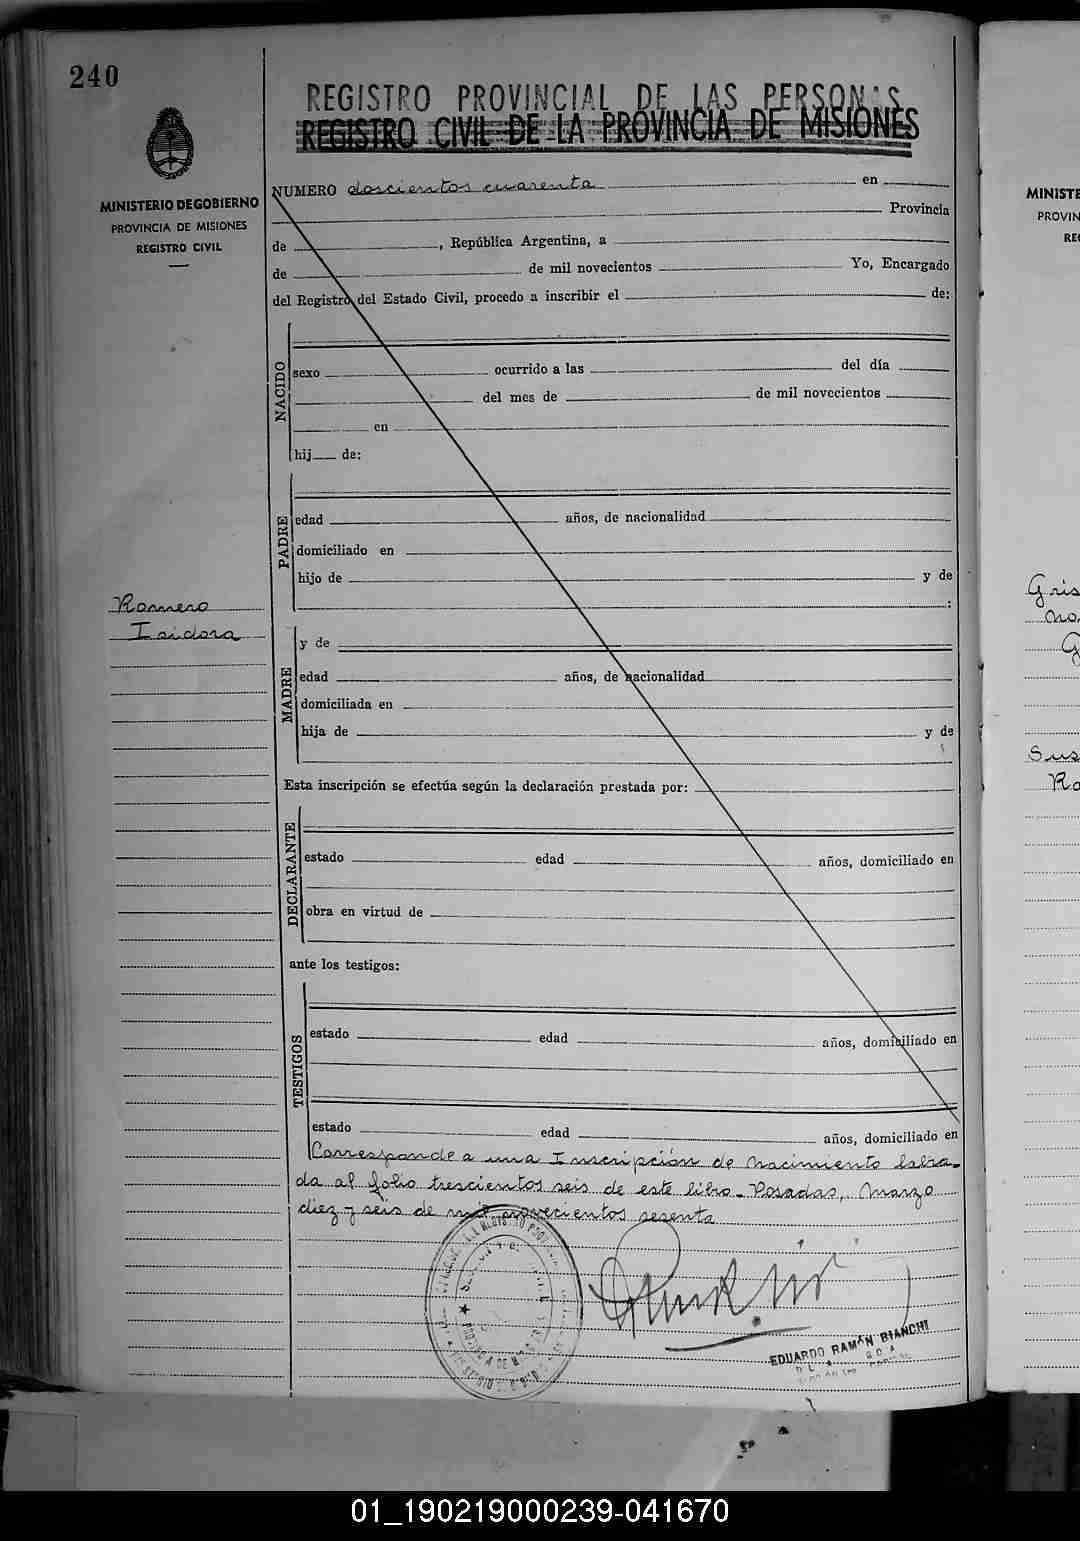 240
REGISTRO PROVINCIAL DE LAS PERSONAS
REGISTRO CIVIL DE LA PROVINCIA DE MISIONES
MINISTERIO DE GOBIERNO
PROVINCIA DE MISIONES
REGISTRO CIVIL
NUMERO doscientos cuarenta en
Provincia
de , República Argentina, a
de de mil novecientos Yo, Encargado
del Registro del Estado Civil, procedo a inscribir el de:
NACIDO
sexo ocurrido a las del día
del mes de de mil novecientos
en
hij de:
PADRE
edad años, de nacionalidad
domiciliado en
hijo de y de
:
Romero
Isidora
MADRE
y de
edad años, de nacionalidad
domiciliada en
hija de y de
Esta inscripción se efectúa según la declaración prestada por:
DECLARANTE
estado edad años, domiciliado en
obra en virtud de
ante los testigos:
TESTIGOS
estado edad años, domiciliado en
estado edad años, domiciliado en
Corresponde a una Inscripción de nacimiento labra-
da al folio trescientos seis de este libro - Posadas, Marzo
diez y seis de mil novecientos sesenta
EDUARDO RAMÓN BIANCHI
MINISTE
PROVIN
RE
Gris
Sus
Ro
01_190219000239-041670